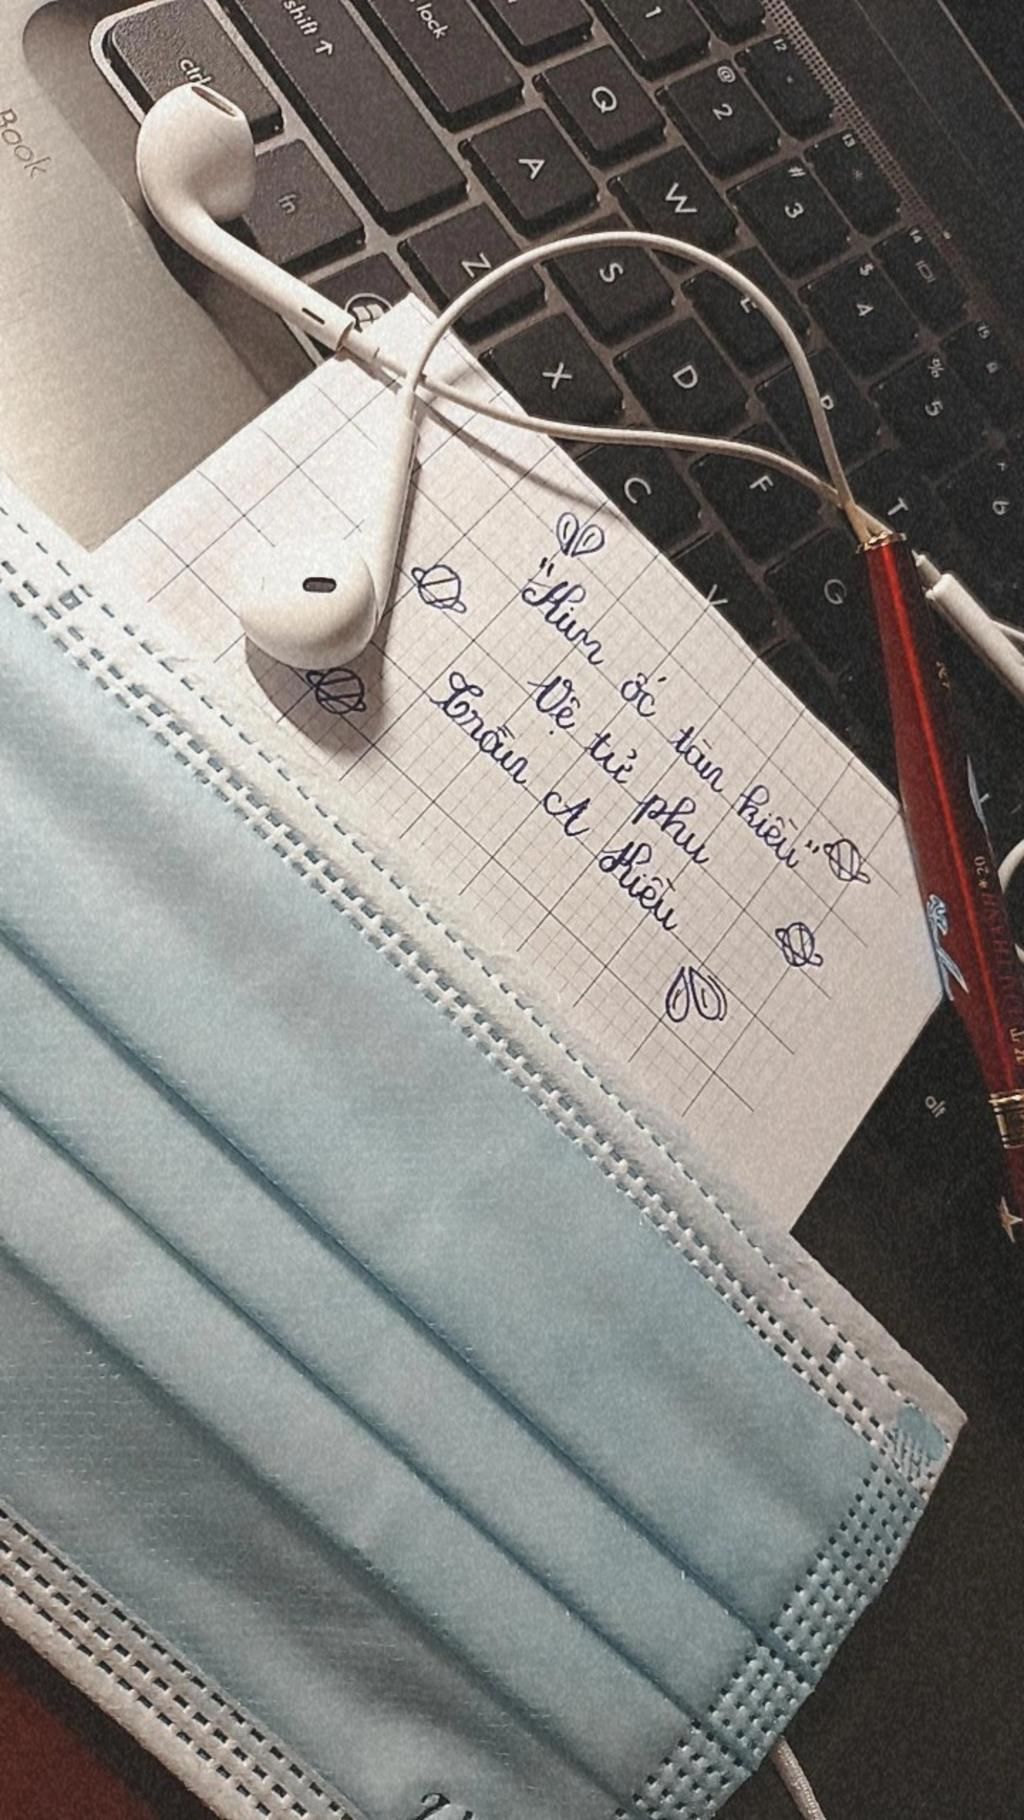 Book
ctrl
shift ↑
lock
fn
1
Q
@
2
A
W
#
3
Z
S
E
$
4
X
D
R
%
5
C
F
T
6
V
G
alt
"Kim ốc tàn kiều"
Vệ tử phu
Trần A Kiều